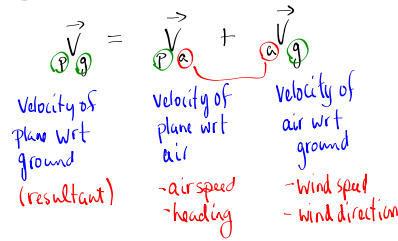 pVg = pVa + aVg
velocity of
plane wrt
ground
(resultant)
velocity of
plane wrt
air
-airspeed
-heading
velocity of
air wrt
ground
-windspeed
-wind direction